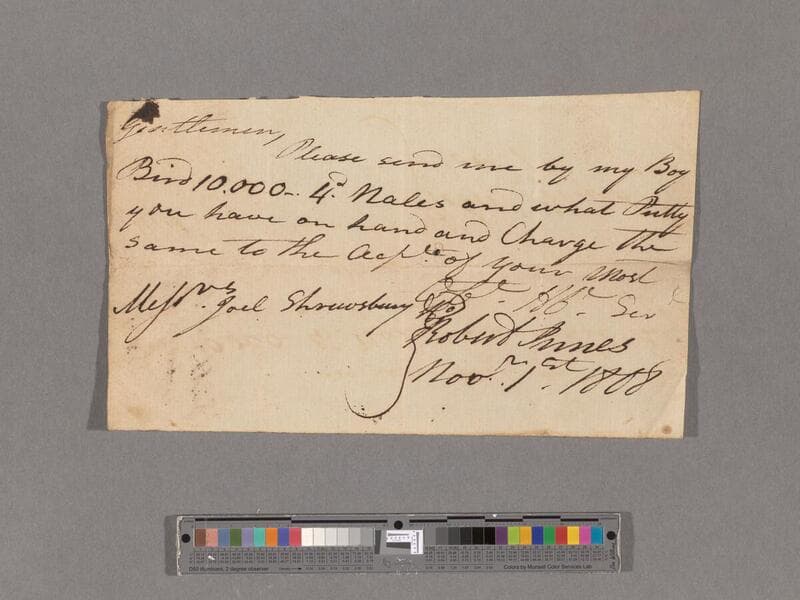 Gentlemen,
Please send me by my Boy
Bird 10.000 - 4d Nales and what Putty
you have on hand and Charge the
same to the Acpt. of your Most
Obt. Hb. Ser
Messrs. Joel Shrewsbury & Co
Robert Innes
Novr. 1st. 1808
D50 Illuminant, 2 degree observer
Colors by Munsell Color Services Lab